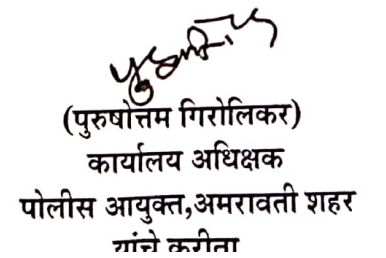 (पुरुषोत्तम गिरोलिकर)
कार्यालय अधिक्षक
पोलीस आयुक्त,अमरावती शहर
यांचे करीता